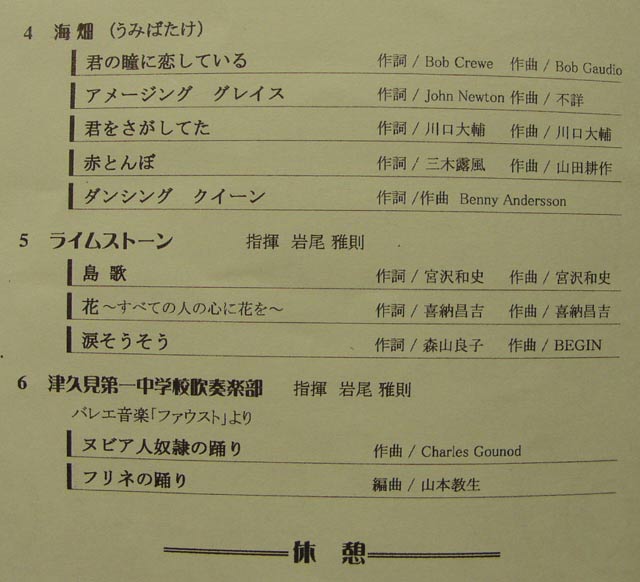 4 海畑 (うみばたけ)
君の瞳に恋している 作詞 / Bob Crewe 作曲 / Bob Gaudio
アメージング グレイス 作詞 / John Newton 作曲 / 不詳
君をさがしてた 作詞 / 川口大輔 作曲 / 川口大輔
赤とんぼ 作詞 / 三木露風 作曲 / 山田耕作
ダンシング クイーン 作詞 /作曲 Benny Andersson
5 ライムストーン 指揮 岩尾 雅則
島 歌 作詞 / 宮沢和史 作曲 / 宮沢和史
花〜すべての人の心に花を〜 作詞 / 喜納昌吉 作曲 / 喜納昌吉
涙そうそう 作詞 / 森山良子 作曲 / BEGIN
6 津久見第一中学校吹奏楽部 指揮 岩尾 雅則
バレエ音楽「ファウスト」より
ヌビア人奴隷の踊り 作曲 / Charles Gounod
フリネの踊り 編曲 / 山本教生
休 憩